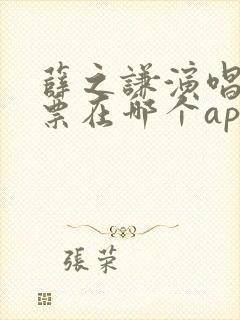 薛之謙演唱
票在哪个ap
張荣